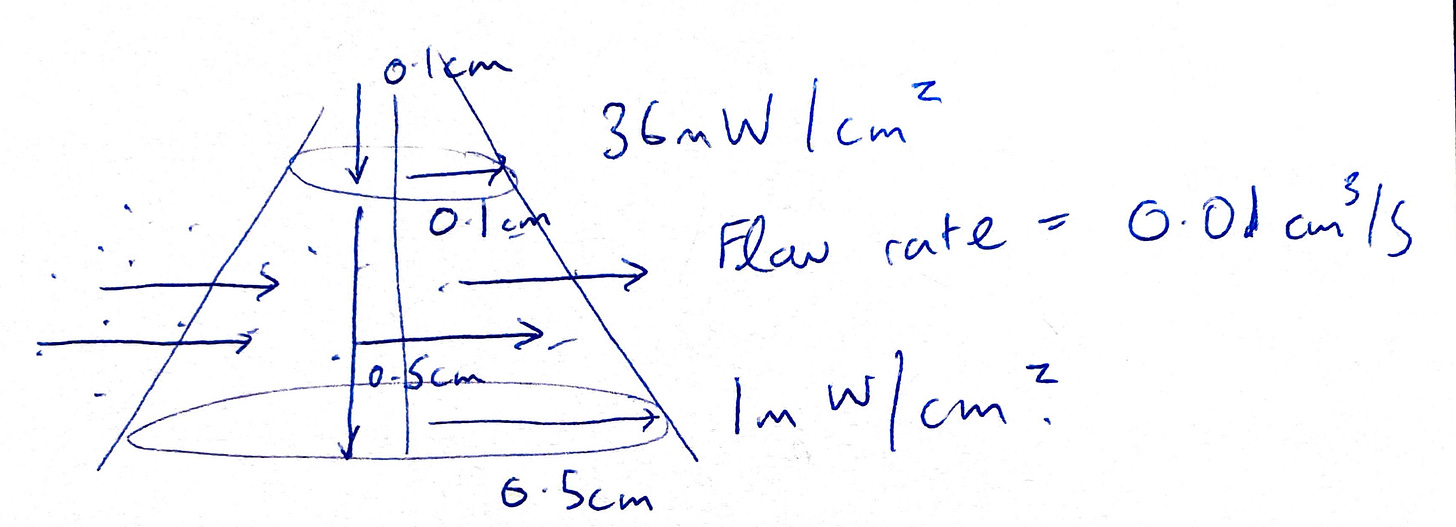 0.1cm
36mW/cm²
0.1cm
Flow rate = 0.01cm³/s
0.5cm
1mW/cm²
0.5cm